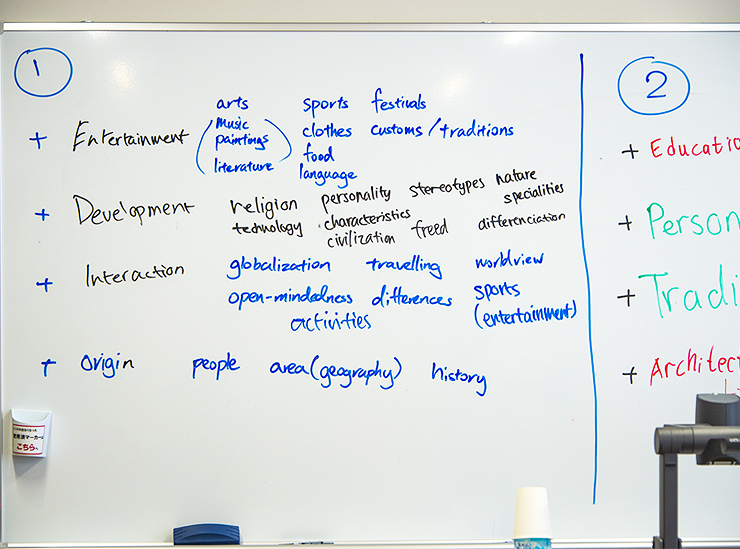 1
arts sports festivals
+ Entertainment (music paintings literature) clothes customs/traditions
food
language
+ Development religion personality stereotypes nature
specialities
technology characteristics freed differenciation
civilization
+ Interaction globalization travelling worldview
open-mindedness differences sports
activities (entertainment)
+ Origin people area(geography) history
2
+ Educatio
+ Person
+ Tradi
+ Architec
こちら、